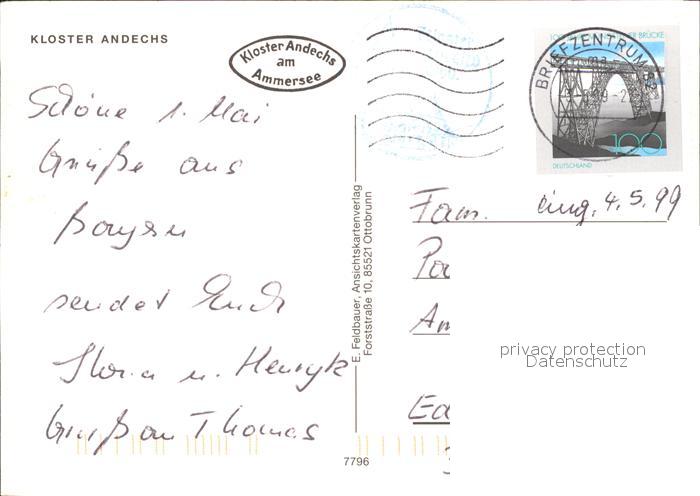 KLOSTER ANDECHS
Kloster Andechs
am
Ammersee
Schöne 1. Mai
Grüße aus
Bayern
sendet Euch
Gloria u. Henryk
Gruß an Thomas
E. Feldbauer, Ansichtskartenverlag
Forststraße 10, 85521 Ottobrunn
7796
BRIEFZENTRUM 82
100
DEUTSCHLAND
Fam. eing. 4.5.99
Pa
Am
Ea
privacy protection
Datenschutz